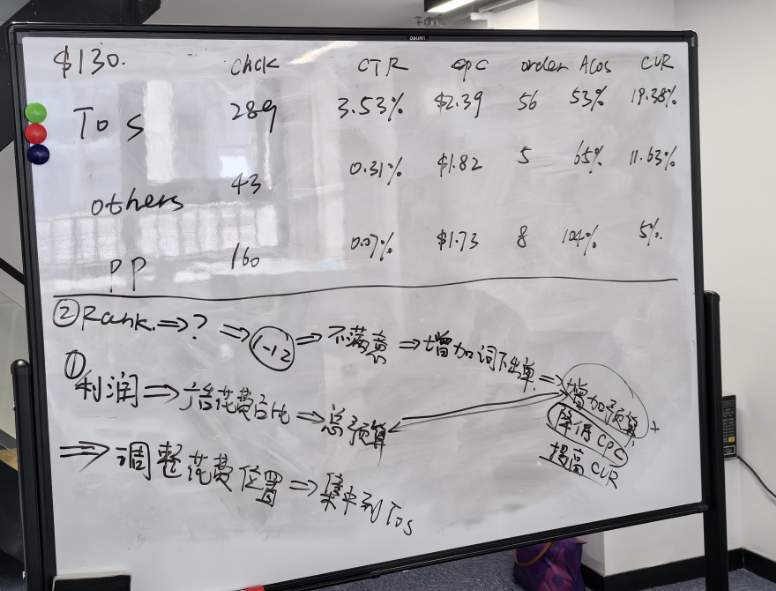 $130. click CTR cpc order Acos CVR
Tos 289 3.53% $2.39 56 53% 19.38%
others 43 0.31% $1.82 5 65% 11.63%
PP 160 0.07% $1.73 8 104% 5%
② Rank. ⇒ ? ⇒ 1-12 ⇒ 不满意 ⇒ 增加词下出单 ⇒ 增加预算 +
降低CPC
提高CVR
① 利润 ⇒ 广告花费占比 ⇒ 总预算
⇒ 调整花费位置 ⇒ 集中到Tos